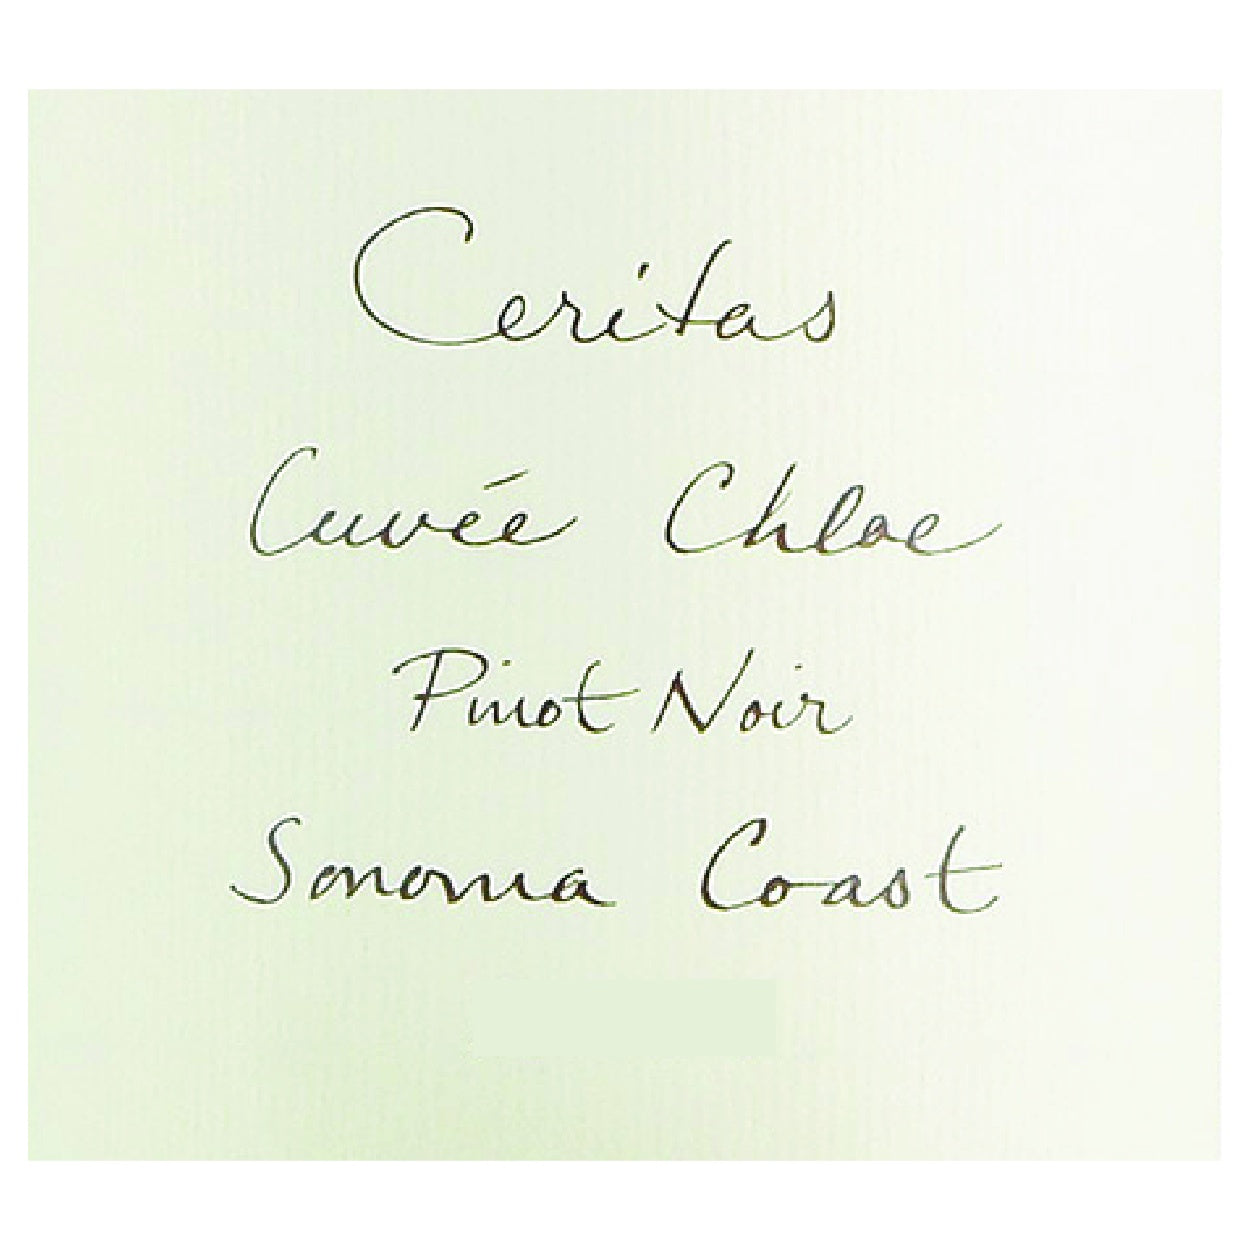 Ceritas
Cuvée Chloe
Pinot Noir
Sonoma Coast